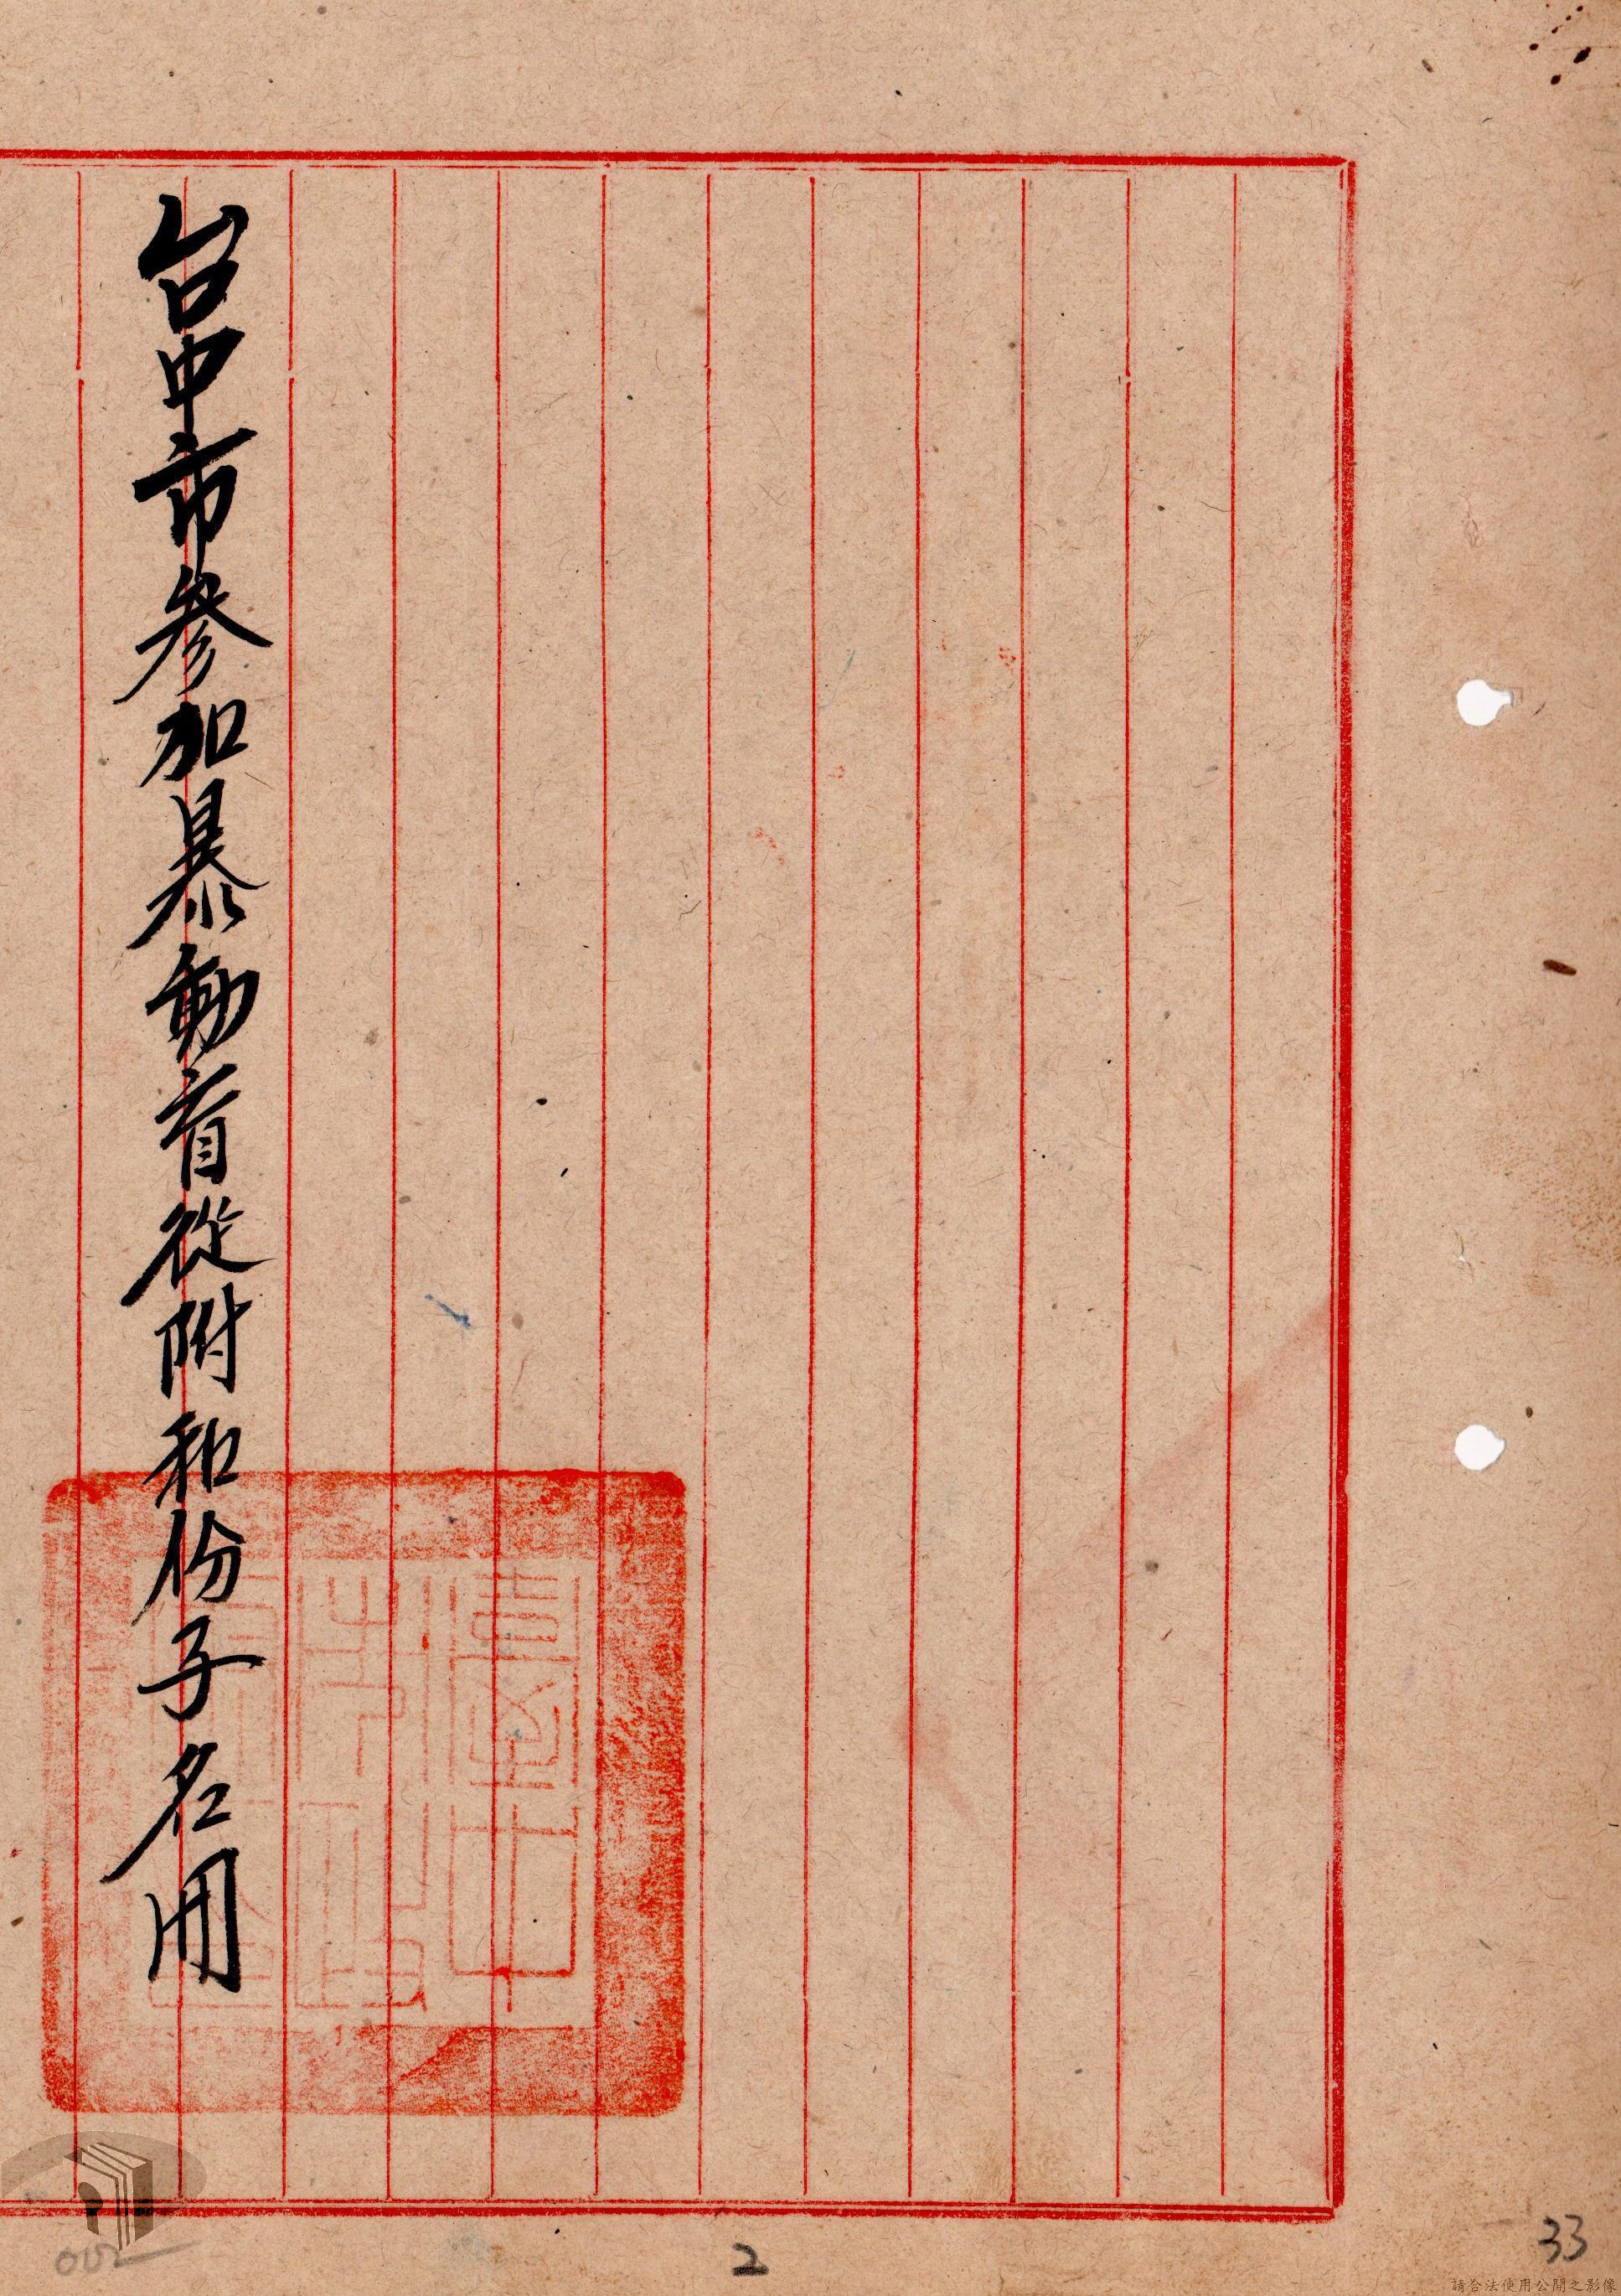 台中市參加暴動首從附和份子名册
2
33
請合法使用公開之影像